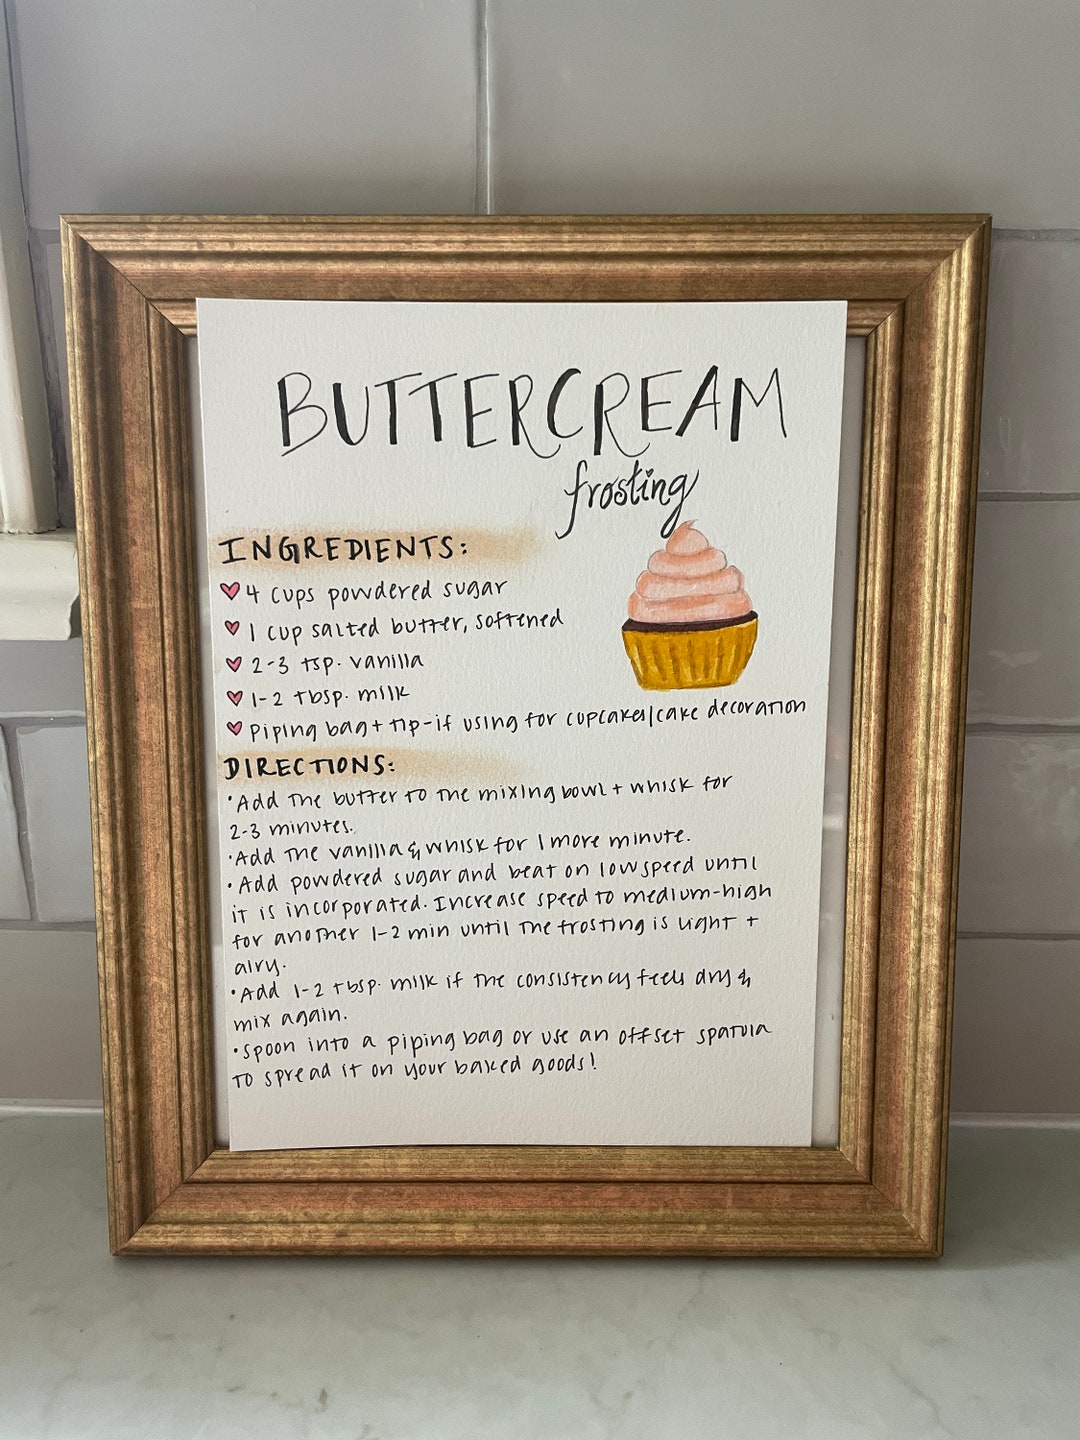 BUTTERCREAM
frosting
INGREDIENTS:
4 cups powdered sugar
1 cup salted butter, softened
2-3 tsp. vanilla
1-2 tbsp. milk
piping bag + tip - if using for cupcakes/cake decoration
DIRECTIONS:
• Add the butter to the mixing bowl + whisk for
2-3 minutes.
• Add the vanilla & whisk for 1 more minute.
• Add powdered sugar and beat on low speed until
it is incorporated. Increase speed to medium-high
for another 1-2 min until the frosting is light +
airy.
• Add 1-2 tbsp. milk if the consistency feels dry &
mix again.
• spoon into a piping bag or use an offset spatula
to spread it on your baked goods!